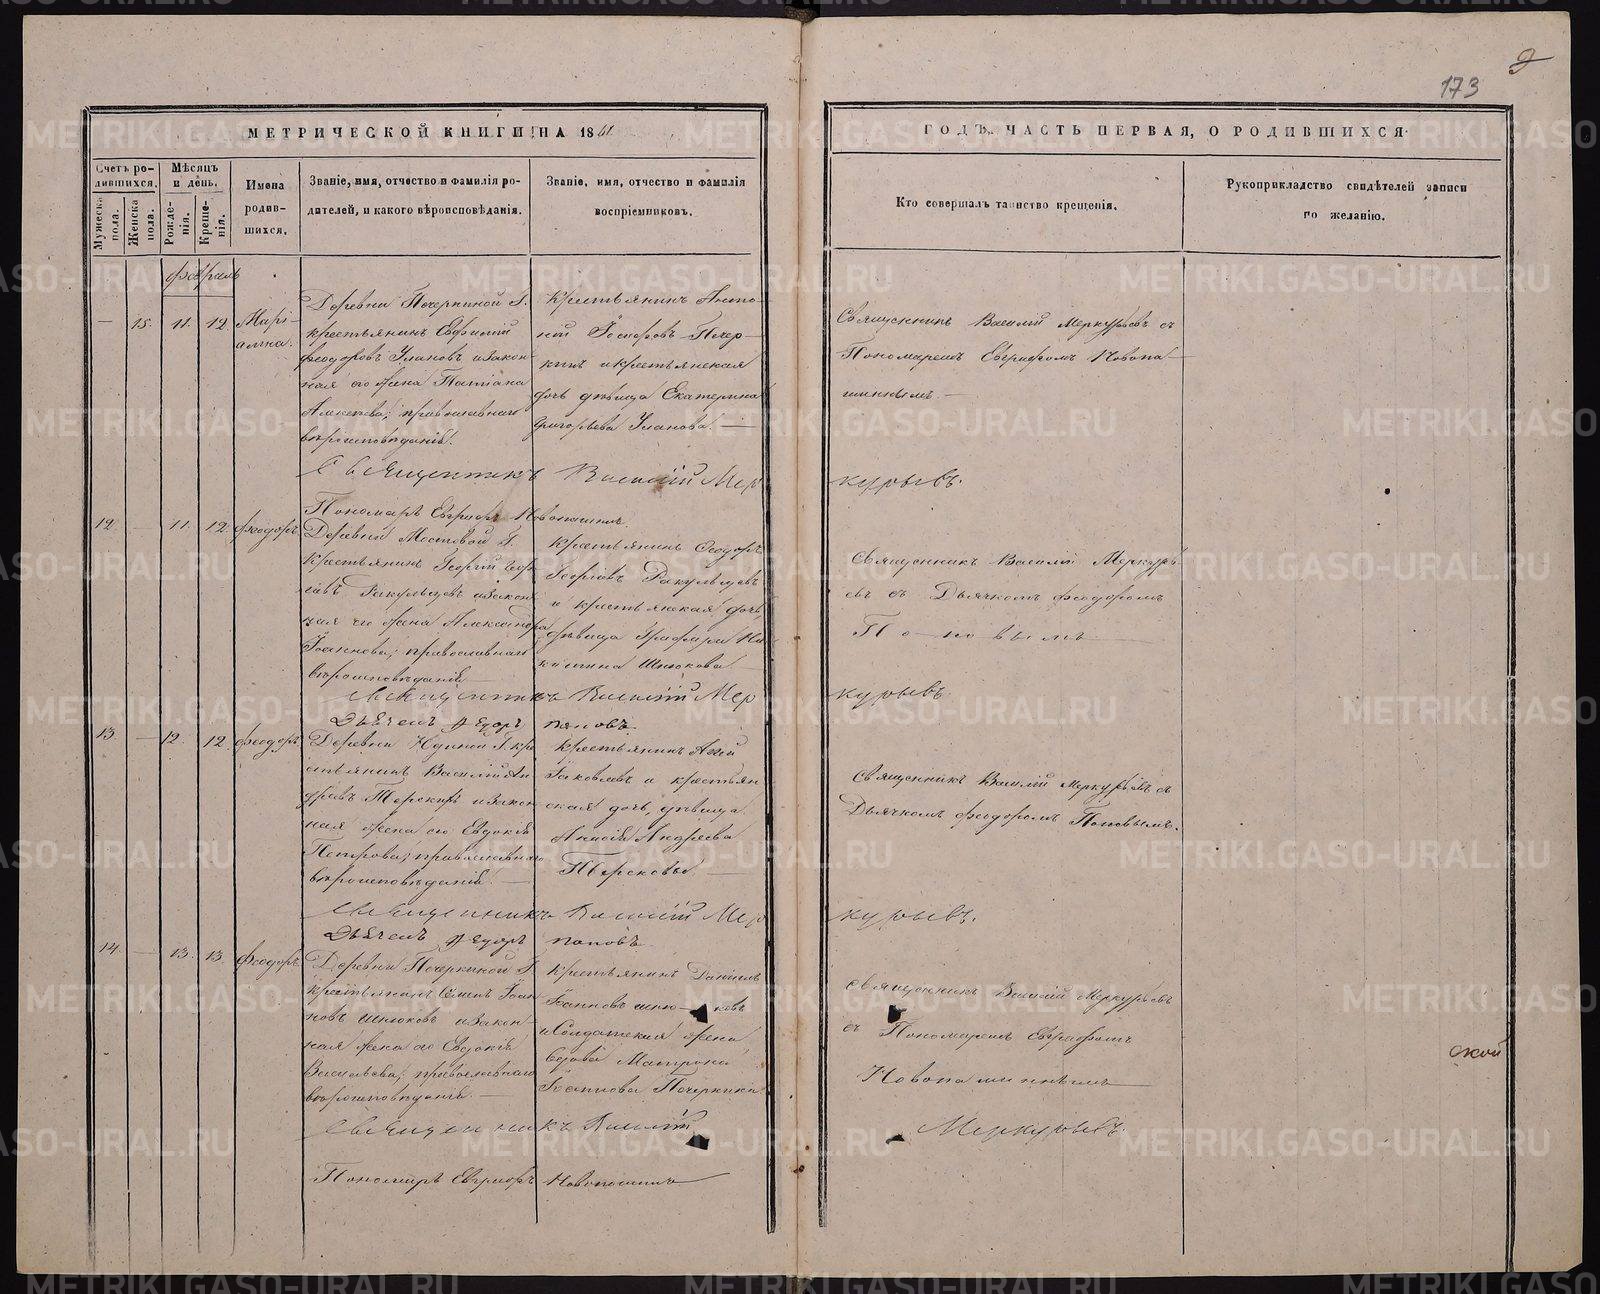 173
МЕТРИЧЕСКОЙ КНИГИ НА 1861.
ГОДЪ. ЧАСТЬ ПЕРВАЯ, О РОДИВШИХСЯ.
Счетъ родившихся.
Мужеска пола.
Женска пола.
Мѣсяцъ и день.
Рожденія.
Крещенія.
Имена родившихся.
Званіе, имя, отчество и фамилія родителей, и какого вѣроисповѣданія.
Званіе, имя, отчество и фамилія воспріемниковъ.
Кто совершалъ таинство крещенія.
Рукоприкладство свидѣтелей записи по желанію.
февраль
— 15. 11. 12
Марі-
амна.
Деревни Печеркиной Г.
крестьянинъ Евфимій
Феодоровъ Улановъ и закон-
ная его жена Татіана
Алексѣева; православнаго
вѣроисповѣданія.
крестьянинъ
Печер-
кинъ и крестьянская
дочь дѣвица Екатерина
Григорьева Уланова. —
Священникъ Василій Меркурьевъ съ
Пономаремъ Евграфомъ Новопа-
шиннымъ. —
Священникъ Василій Меркурьевъ.
Пономарь Евграфъ Новопашинъ.
12. — 11. 12. Феодоръ
Деревни Мостовой Г.
крестьянинъ Георгій Геор-
гіевъ Ракульцевъ и закон-
ная его жена Александра
Іоаннова; православнаго
вѣроисповѣданія —
крестьянинъ Феодоръ
Георгіевъ Ракульцевъ
и крестьянская дочь,
дѣвица
Шнюкова —
Священникъ Василій Меркурь-
евъ съ Дьячкомъ Феодоромъ
Поповымъ
Священникъ Василій Меркурьевъ
Дьячекъ Федоръ Поповъ
13. — 12. 12 Феодоръ
Деревни Юдиной Г. кре
стьянинъ Василій Ан
дреевъ Терскихъ и закон
ная жена его Евдокія
Петрова; православнаго
вѣроисповѣданія. —
крестьянинъ
Іаковлевъ и крестьян
ская дочь, дѣвица
Анисія Андреева
Терсковы. —
Священникъ Василій Меркурьевъ съ
Дьячкомъ Феодоромъ Поповымъ.
Священникъ Василій Меркурьевъ.
Дьячекъ Федоръ Поповъ
14. — 13. 13. Феодоръ
Деревни Печеркиной Г.
крестьянинъ Семенъ Іоан
новъ Шнюковъ и закон-
ная жена его Евдокія
Васильева; православнаго
вѣроисповѣданія. —
крестьянинъ Даніилъ
Іоанновъ Шнюковъ
и Солдатская жена
вдова Матрона
Іоаннова Печеркина.
Священникъ Василій Меркурьевъ
съ Пономаремъ Евграфомъ
Новопашиннымъ —
ской
Священникъ Василій Меркурьевъ.
Пономарь Евграфъ Новопашинъ
METRIKI.GASO-URAL.RU